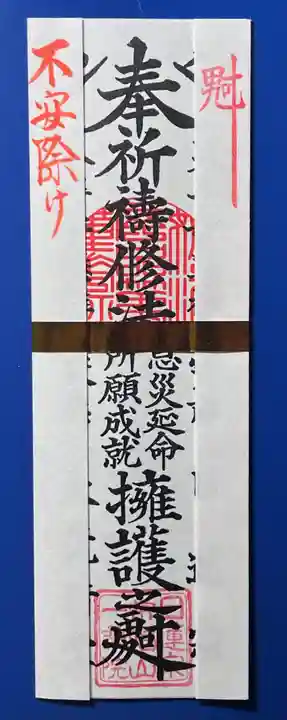 奉祈祷修法
息災延命
所願成就
擁護之
不安除け